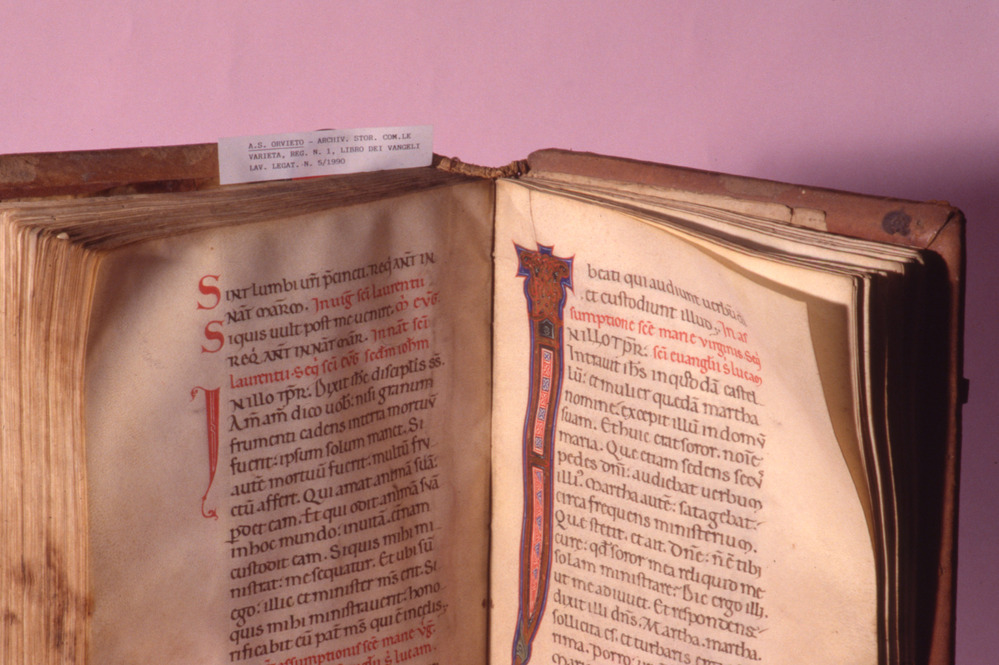 A.S. ORVIETO - ARCHIV. STOR. COM.LE
VARIETA, REG. N. 1, LIBRO DEI VANGELI
LAV. LEGAT. N. 5/1990
Sint lumbi urī p̄cincti. req̄ ant in
nat̄ marco. In uiḡ sc̄i laurentii
Siquis uult post me uenire. eūḡ
Req̄. ant in nat̄ mar̄. In nat̄ sc̄i
laurentii. Seq̄ sc̄i eūḡ sc̄dm ioh̄m
IN illo tp̄r. Dixit ih̄c discip̄lis
Am̄ am̄ dico uob̄: nisi granum
frumenti cadens in terra mortuū
fuerit: ipsum solum manet. Si
autē mortuū fuerit: multū fru
ctū affert. Qui amat animā suā:
p̄det eam. Et qui odit animā suā
in hoc mundo: in uitā
custodit eam. Siquis mihi mi
nistrat: me sequatur. Et ubi sū
ego: illic et minister m̄s erit. Si
quis mihi ministrauerit: hono
rificabit eū pat̄ m̄s qui ē in celis.
assumptionis sc̄e marie
sc̄i euanḡlii s̄ lucam
beati qui audiunt uerbū
et custodiunt illud. In as
sumptione sc̄e marie uirginis. Seq̄
IN ILLO TP̄R: sc̄i euanḡlii s̄ lucam
Intrauit ih̄s in quoddā castel
lū: et mulier quedā martha
nomine. excepit illū in domū
suam. Et huic erat soror. noīe
maria. Que etiam sedens secus
pedes dn̄i: audiebat uerbum
illiꝰ. Martha autē: satagebat
circa frequens ministerium.
Que stetit. et ait. Dn̄e: n̄ ē tibi
cure: qđ soror mea reliquid me
solam ministrare? Dic ergo illi.
ut me adiuuet. Et respondens
dixit illi dn̄s. Martha. martha.
sollicita es. et turbaris erga
rima. Porro unum
Maria